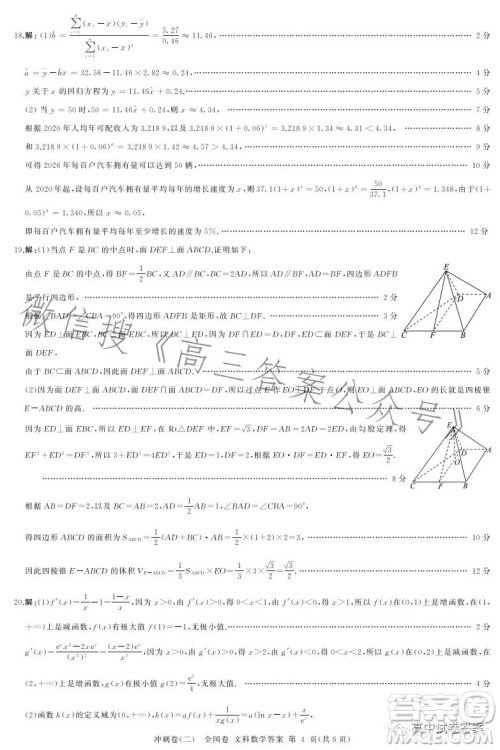 18.解：(1)b̂=∑(xᵢ-x̄)(yᵢ-ȳ)/∑(xᵢ-x̄)²=5.27/0.46≈11.46, 2 分
â=ȳ-b̂x̄=32.56-11.46×2.82≈0.24, 4 分
y 关于 x 的回归方程为 y=11.46x+0.24. 5 分
(2) 当 y=50 时,50=11.46x+0.24,x≈4.34, 7 分
根据 2020 年人均年可配收入为 3.218 9,3.218 9×(1+0.06)⁵=3.218 9×1.34≈4.31<4.34, 8 分
3.218 9×(1+0.06)⁶=3.218 9×1.42≈4.57>4.34, 9 分
可得 2026 年每百户汽车拥有量可达到 50 辆, 10 分
从 2020 年起,设每百户汽车拥有量平均每年的增长率为 x,则 37.1(1+x)⁶=50,(1+x)⁶=50/37.1,(1+
0.05)⁶=1.340,所以 x≈0.05,
即每年每百户汽车拥有量平均每年至少增长率为 5%. 12 分
19.解：(1)当点 F 是 BC 的中点时,面 DEF⊥面 ABCD.证明如下:
由点 F 是 BC 的中点,得 BF=1/2BC,又 AD∥BC,2AD=BC,所以 AD∥BF,AD=BF,因此四边形 ADFB
是平行四边形, 2 分
∠BAD=∠CBA=90°,得四边形 ADFB 是矩形,故 BC⊥DF.
因为 ED⊥面 ABCD,所以 ED⊥BC,因为 DF∩ED=D,所以 BC⊥
面 DEF.
由于 BC⊂面 ABCD,因此面 DEF⊥面 ABCD. 5 分
(2)因为面 DEF⊥面 ABCD,面 DEF∩面 ABCD=DF,点 E 在底面 ABCD 的射影点 O 在 DF 上,则 EO⊥面 ABCD,所以 EO 的长就是四棱锥
E-ABCD 的高.
因为 ED⊥面 EBC,所以 ED⊥EF,在 Rt△DEF 中,EF=√3,由勾股定理,得
EF²+ED²=DF²,所以 3+ED²=4,得 ED=1,EO=√3/2.
8 分
根据 AB=DF=2,以及 BC=AB=2,AD=1,∠BAD=∠CBA=90°,
得四边形 ABCD 的面积为 S_ABCD=1/2(1+2)×2=3, 10 分
因此四棱锥 E-ABCD 的体积 V_E-ABCD=1/3 S_ABCD×EO=1/3×3×√3/2=√3/2. 12 分
20.解：(1)f′(x)=1/x-1=(1-x)/x,因为 x>0,由 f′(x)>0,得 0<x<1,由 f′(x)<0,得 x>1,所以 f(x)在(0,1)上是增函数,在(1,
+∞)上是减函数,f(x)有极大值 f(1)=-1,没有极小值. 2 分
g′(x)=(eˣx²-2xeˣ)/(x²)²=eˣ(x-2)/x³,因为 x>0,由 g′(x)>0,得 x>2,由 g′(x)<0,得 0<x<2,所以 g(x)在
(0,2)上是减函数,在(2,+∞)上是增函数,g(x)有极小值 g(2)=e²/4,没有极大值. 4 分
微信搜《高三答案公众号》
高中试卷答案
冲刺卷(二) 全国卷 文科数学答案 第 4 页(共 6 页)